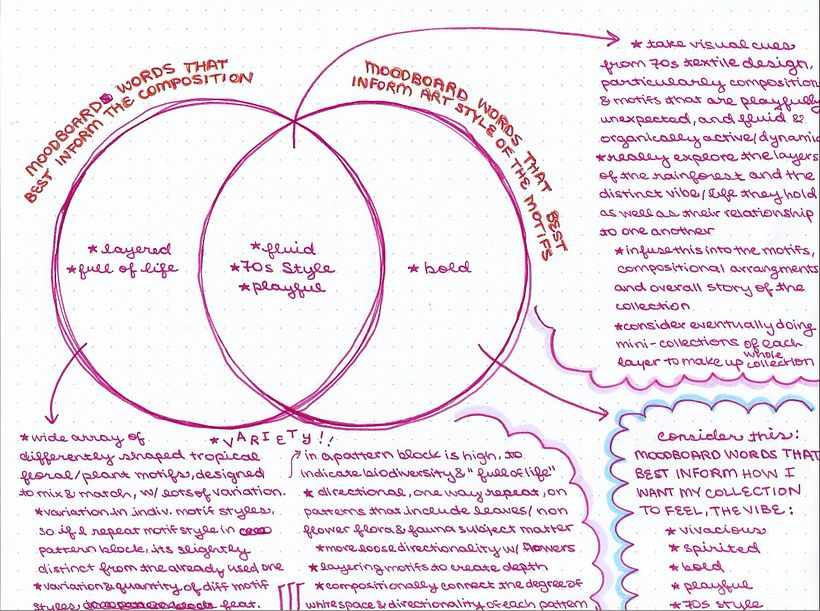 MOODBOARDS WORDS THAT
BEST INFORM THE COMPOSITION
MOODBOARD WORDS THAT BEST
INFORM ART STYLE OF THE MOTIFS
*layered
*full of life
*fluid
*70s Style
*playful
*bold
*take visual cues
from 70s textile design,
particularly composition
& motifs that are playfully
unexpected, and fluid &
organically active/dynamic
*really explore the layers
of the rainforest and the
distinct vibe/life they hold
as well as their relationship
to one another
*infuse this into the motifs,
compositional arrangments
and overall story of the
collection
*consider eventually doing
mini-collections of each
layer to make up whole collection
*wide array of
differently shaped tropical
floral/plant motifs, designed
to mix & match, w/ lots of variation.
*variation in indiv. motif styles,
so if I repeat motif style in
pattern block, its slightly
distinct from the already used one
*variation & quantity of diff motif
styles feat.
*VARIETY!!
in a pattern block is high, to
indicate biodiversity & "full of life"
*directional, one way repeat, on
patterns that include leaves/non
flower flora & fauna subject matter
*more loose directionality w/ flowers
*layering motifs to create depth
*compositionally connect the degree of
white space & directionality of each pattern
consider this:
MOODBOARD WORDS THAT
BEST INFORM HOW I
WANT MY COLLECTION
TO FEEL, THE VIBE:
*vivacious
*spirited
*bold
*playful
*70s style